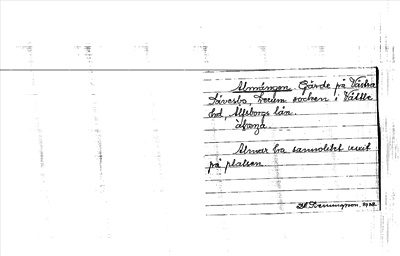 Almängen. Gärde på Västra
Sävesbo, Lerum socken i Vättle
hd, Älfsborgs län.
åbona.
Almar ha sannolikt växt
på platsen
Henningsson. 1928.